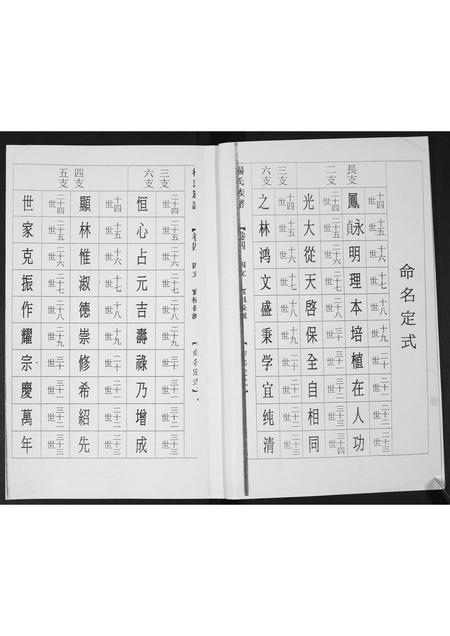 命名定式
長支
二支
十四世 十五世 十六世 十七世 十八世 十九世 二十世 二十一世 二十二世 二十三世
鳳 永貞 明 理 本 培 植 在 人 功
二十四世 二十五世 二十六世 二十七世 二十八世 二十九世 三十世 三十一世 三十二世
光 大 從 天 啓 保 全 自 相 同
三支
六支
十四世 十五世 十六世 十七世 十八世 十九世 二十世 二十一世 二十二世 二十三世
之 林 鴻 文 盛 秉 学 宜 纯 清
楊氏族譜 【卷四 四支
【命名定式】
三支
六支
二十四世 二十五世 二十六世 二十七世 二十八世 二十九世 三十世 三十一世 三十二世 三十三世
恒 心 占 元 吉 壽 祿 乃 增 成
四支
五支
十四世 十五世 十六世 十七世 十八世 十九世 二十世 二十一世 二十二世 二十三世
顯 林 惟 淑 德 崇 修 希 紹 先
二十四世 二十五世 二十六世 二十七世 二十八世 二十九世 三十世 三十一世 三十二世 三十三世
世 家 克 振 作 耀 宗 慶 萬 年